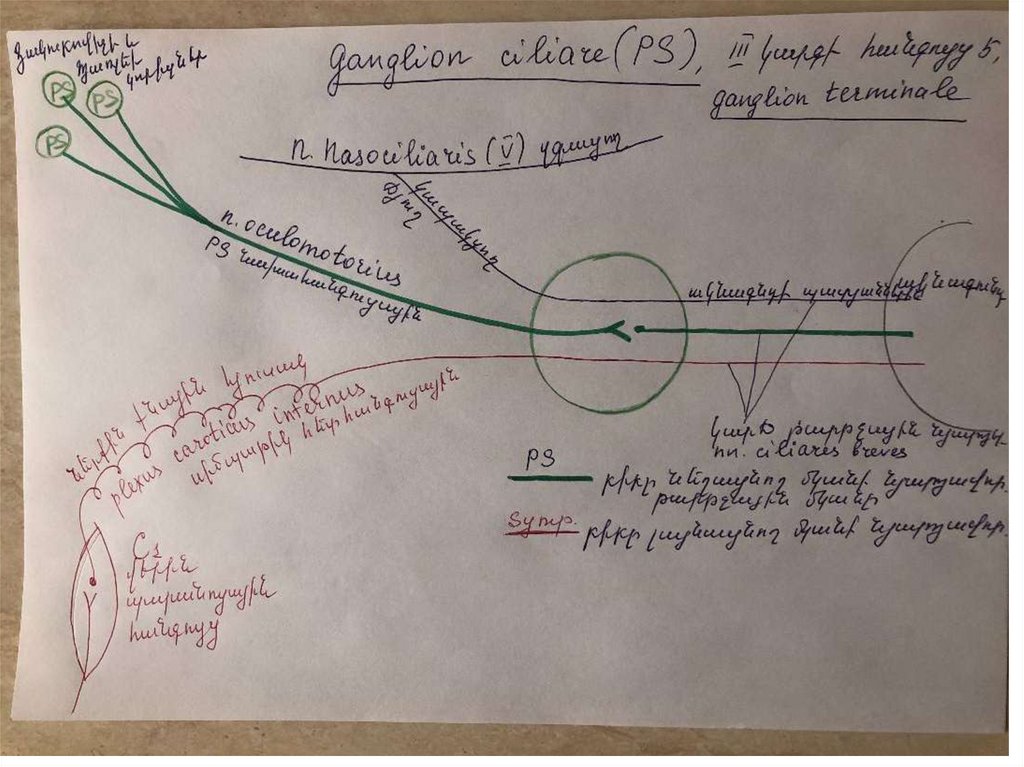 Յակուբովիչի և
Պառլեի
կորիզներ
PS
PS
PS
Ganglion ciliare (PS), III կարգի հանգույց 5,
ganglion terminale
n. nasociliaris (V) զգացող
Ճյուղ
կապակցող
n. oculomotorius
PS նախահանգուցային
ակնագնդի պատյաններ
ակնագունդ
ներքին քնային հյուսակ
plexus caroticus internus
սիմպաթիկ հետհանգուցային
կարճ թարթչային նյարդեր
nn. ciliares breves
PS
բիբը նեղացնող մկանի նյարդավոր.
թարթչային մկանը
Symp.
բիբը լայնացնող մկանի նյարդավոր.
վերին
պարանոցային
հանգույց